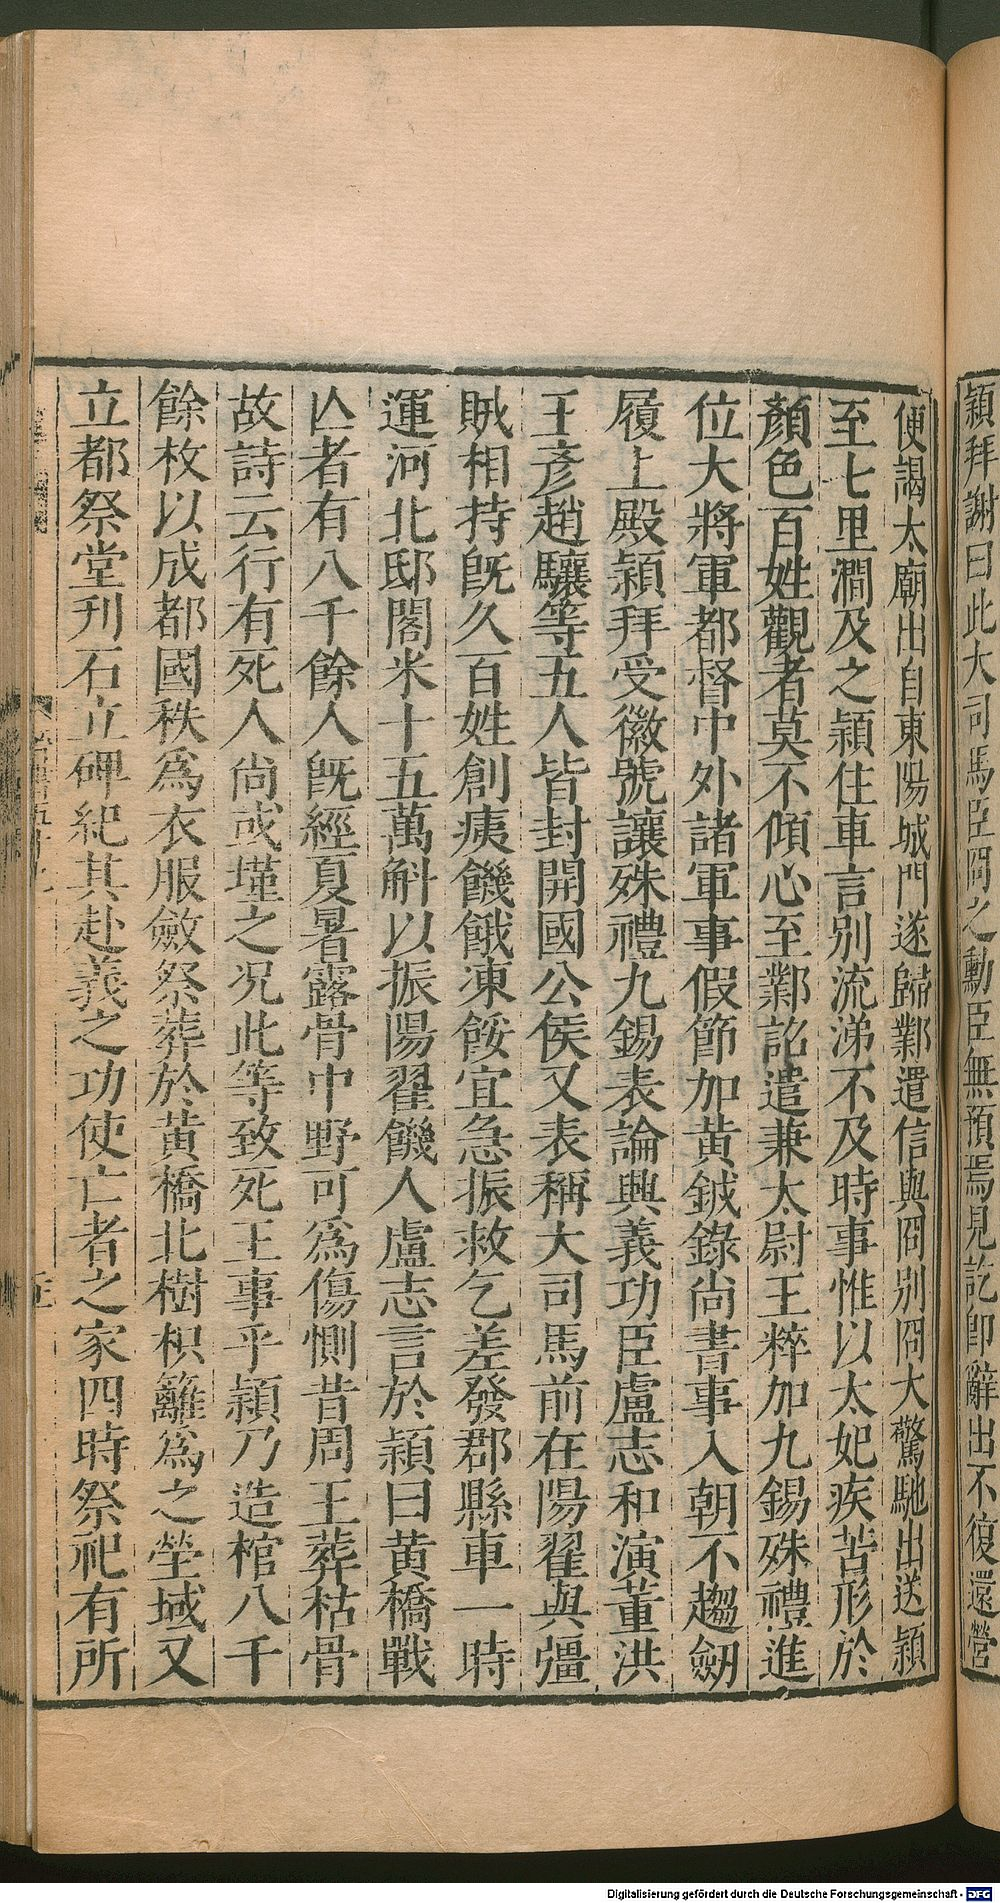 穎拜謝曰此大司馬臣冏之勳臣無預焉見訖卽辭出不復還營
便謁太廟出自東陽城門遂歸鄴遣信與冏別冏大驚馳出送穎
至七里澗及之穎住車言別流涕不及時事惟以太妃疾苦形於
顏色百姓觀者莫不傾心至鄴詔遣兼太尉王粹加九錫殊禮進
位大將軍都督中外諸軍事假節加黃鉞錄尚書事入朝不趨劒
履上殿穎拜受徽號讓殊禮九錫表論興義功臣盧志和演董洪
王彥趙驤等五人皆封開國公侯又表稱大司馬前在陽翟與彊
賊相持旣久百姓創痍饑餓凍餒宜急振救乞差發郡縣車一時
運河北邸閣米十五萬斛以振陽翟饑人盧志言於穎曰黃橋戰
亾者有八千餘人旣經夏暑露骨中野可爲傷惻昔周王葬枯骨
故詩云行有死人尚或墐之况此等致死王事乎穎乃造棺八千
餘枚以成都國秩爲衣服斂祭葬於黃橋北樹枳籬爲之塋域又
立都祭堂刊石立碑紀其赴義之功使亡者之家四時祭祀有所
Digitalisierung gefördert durch die Deutsche Forschungsgemeinschaft - DFG